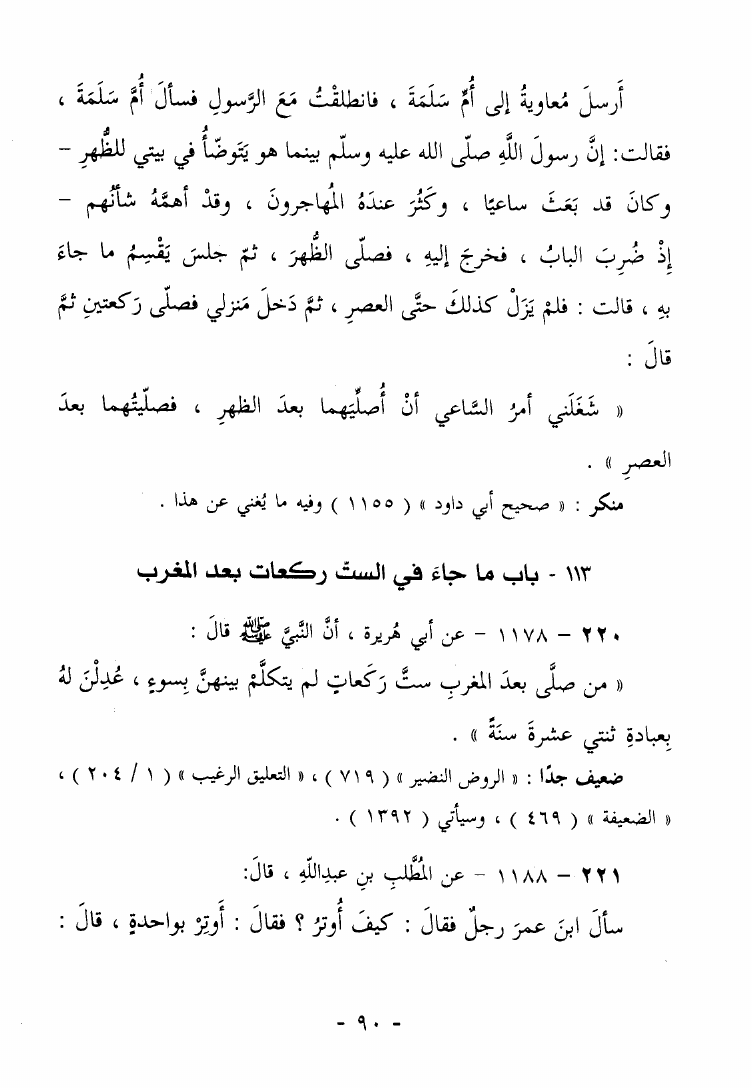 أَرسلَ مُعاويةُ إلى أُمِّ سَلَمَةَ ، فانطلقْتُ مَعَ الرَّسولِ فسألَ أُمَّ سَلَمَةَ ،
فقالت: إنَّ رسولَ اللَّهِ صلّى الله عليه وسلّم بينما هو يَتَوضّأُ في بيتي للظُّهرِ –
وكانَ قد بَعَثَ ساعيًا ، وكَثُرَ عندَهُ المُهاجرونَ ، وقدْ أهمَّهُ شأنُهم –
إِذْ ضُرِبَ البابُ ، فخرجَ إليهِ ، فصلّى الظُّهرَ ، ثمّ جلسَ يَقْسِمُ ما جاءَ
بهِ ، قالت : فلمْ يَزَلْ كذلكَ حتَّى العصرِ ، ثمَّ دَخلَ مَنزلي فصلّى رَكعتينِ ثمَّ
قالَ :
« شَغَلَني أمرُ السَّاعي أنْ أُصلِّيَهما بعدَ الظهرِ ، فصلّيتُهما بعدَ
العصرِ » .
منكر : « صحيح أبي داود » ( ١١٥٥ ) وفيه ما يُغني عن هذا .
١١٣ - باب ما جاءَ في الستّ ركعات بعد المغرب
٢٢٠ – ١١٧٨ – عن أبي هُريرة ، أنَّ النَّبيَّ ﷺ قالَ :
« من صلَّى بعدَ المغربِ ستَّ رَكَعاتٍ لم يتكلَّمْ بينهنَّ بِسوءٍ ، عُدِلْنَ لهُ
بِعبادةِ ثنتي عشرةَ سنَةً » .
ضعيف جدًا : « الروض النضير » ( ٧١٩ ) ، « التعليق الرغيب » ( ١ / ٢٠٤ ) ،
« الضعيفة » ( ٤٦٩ ) ، وسيأتي ( ١٣٩٢ ) .
٢٢١ – ١١٨٨ – عن المُطَّلبِ بنِ عبدِاللّهِ ، قالَ:
سألَ ابنَ عمرَ رجلٌ فقالَ : كيفَ أُوترُ ؟ فقالَ : أَوتِرْ بواحدةٍ ، قالَ :
- ٩٠ -